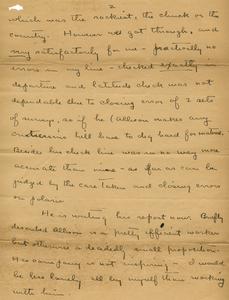 2
which was the rockiest, the chunk or the
country. However we got through, and
very satisfactorily for me - practically no
errors in my line - checked exactly in
departure and latitude check was not
dependable due to closing error of 2 sets
of surveys, so if he (Allison makes any
criticisms he'll have to dig hard for material.
Besides his check line was in no way more
accurate than mine - as far as can be
judged by the care taken and closing errors
on polaris.
He is writing his report now. Briefly
described Allison is a pretty efficient worker
but otherwise a deadly, small proposition.
His company is not inspiring - I would
be less lonely all by myself than working
with him.